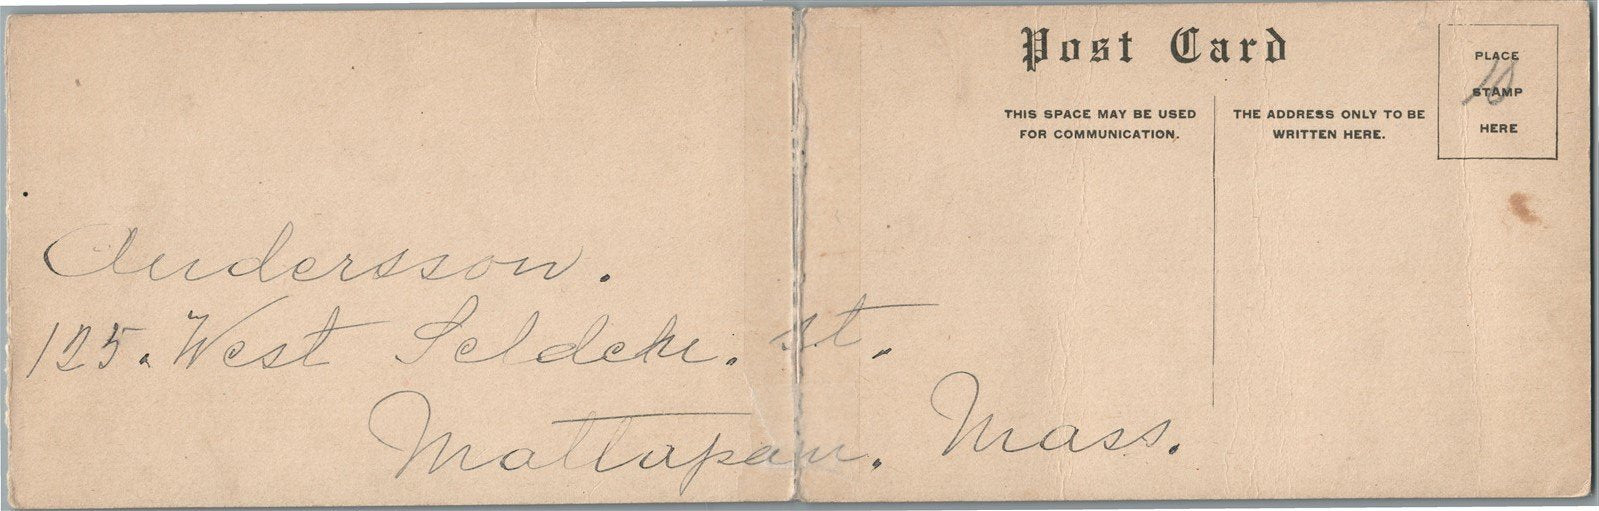 Post Card
PLACE
STAMP
HERE
THIS SPACE MAY BE USED
FOR COMMUNICATION.
THE ADDRESS ONLY TO BE
WRITTEN HERE.
Andersson.
125. West Seldehe. st.
Mattapan. Mass.